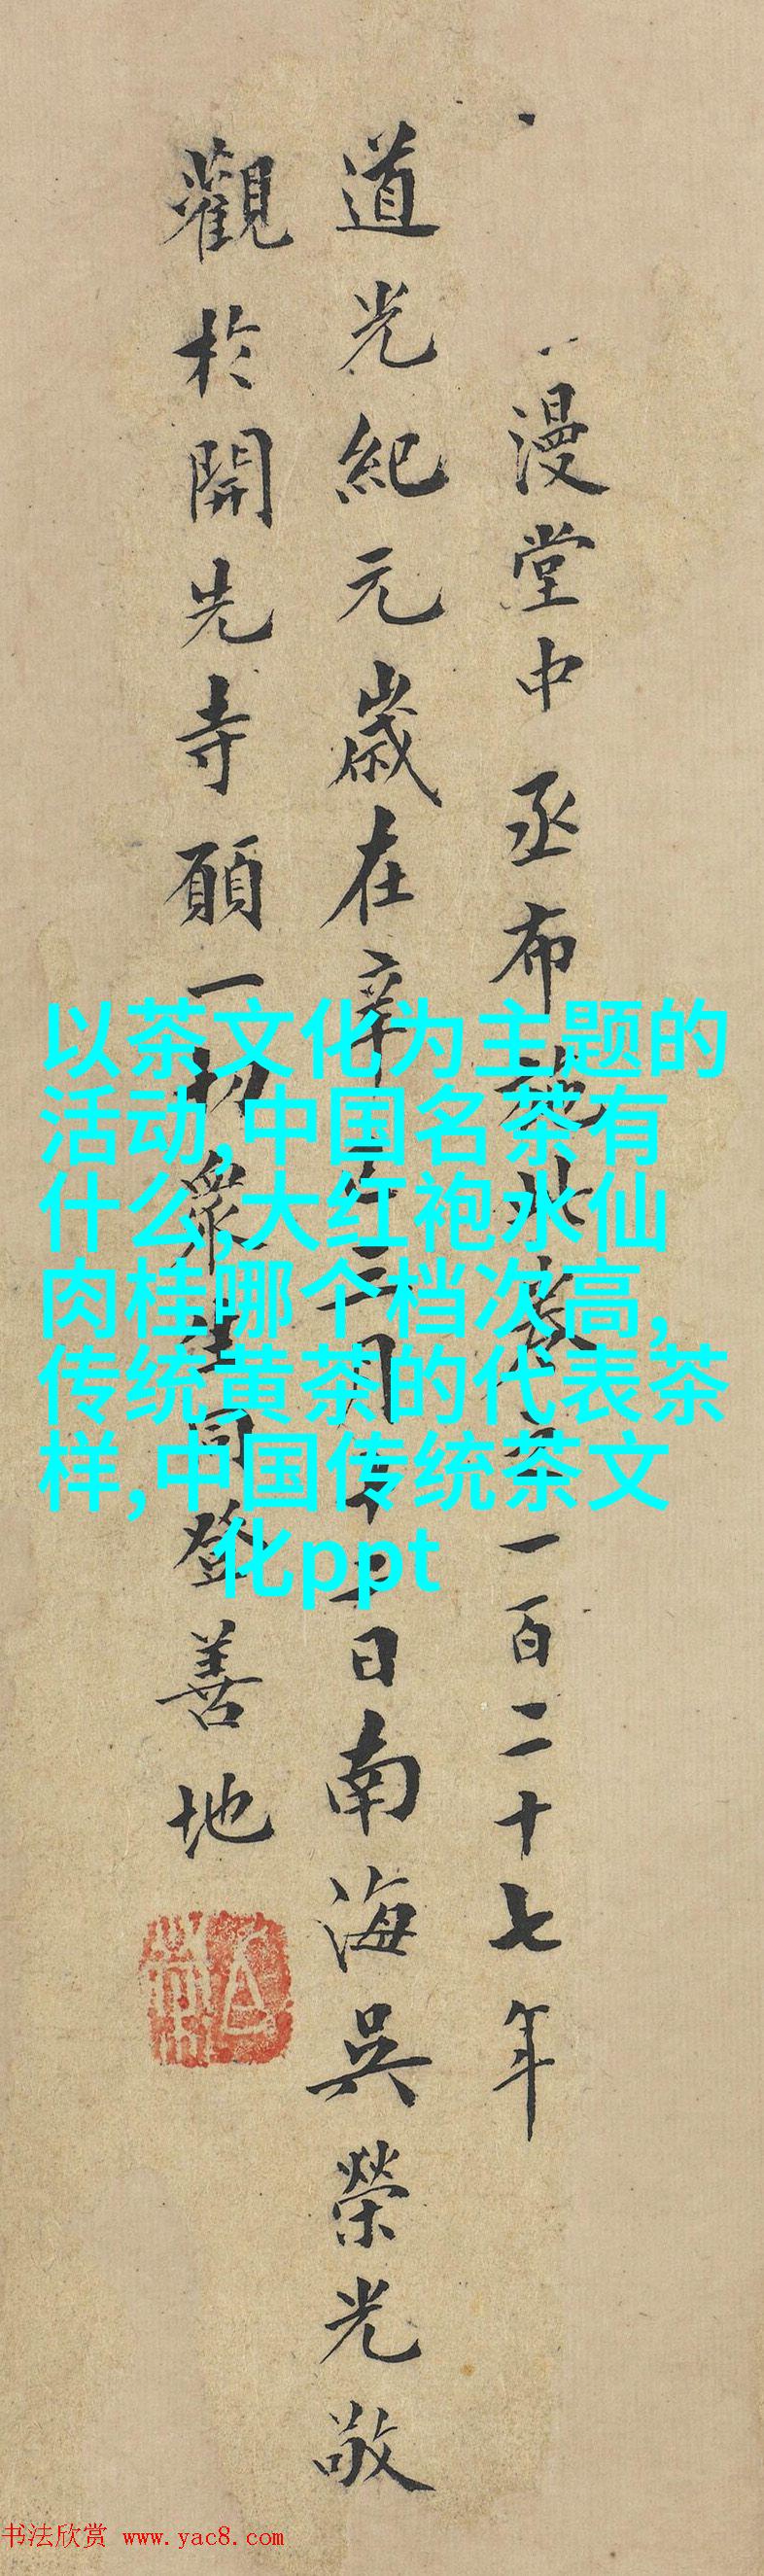 漫堂中丞布施此卷之一百二十七年
道光紀元歲在辛巳三月十七日南海吳榮光敬
觀於開先寺願一切衆生同登善地
以茶文化为主题的
活动,中国名茶有
什么,大红袍水仙
肉桂哪个档次高,
传统黄茶的代表茶
样,中国传统茶文
化ppt
书法欣赏 www.yac8.com